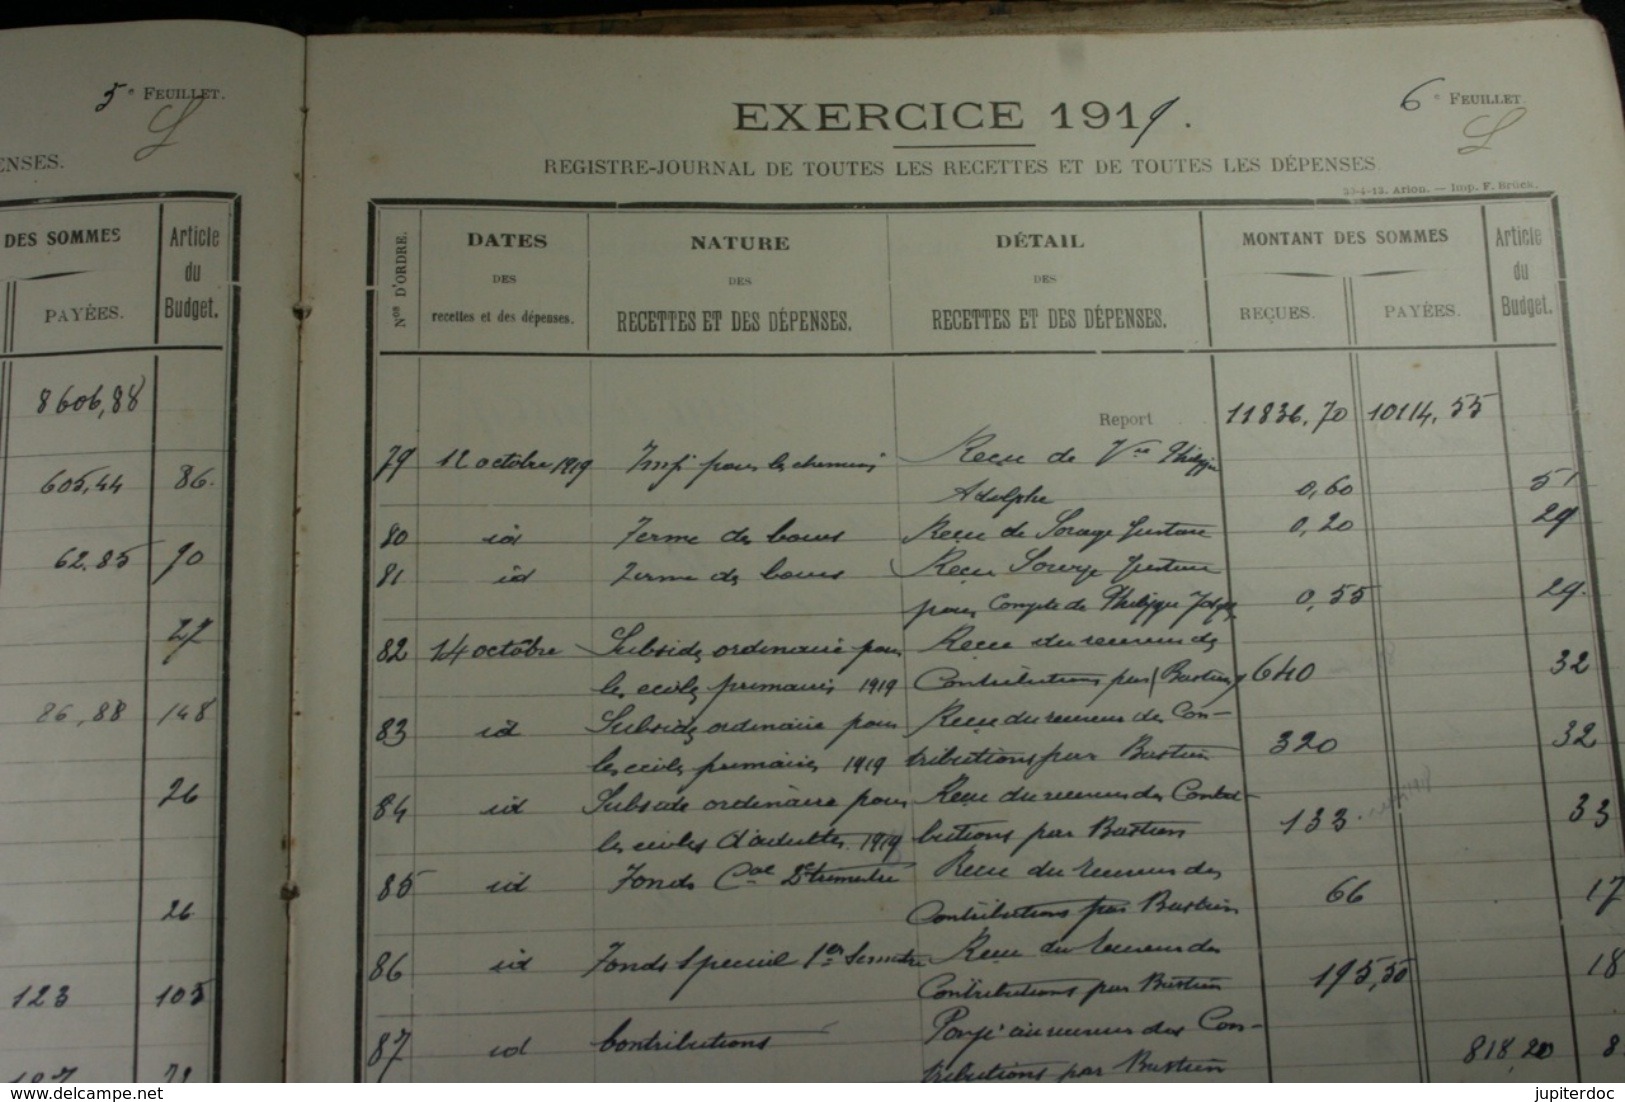 5e FEUILLET.
ENSES.
DES SOMMES
Article
du
Budget.
PAYÉES.
8606,88
605,44 86.
62,85 90
27
86,88 148
26
26
123 105
6e FEUILLET
EXERCICE 1919.
REGISTRE-JOURNAL DE TOUTES LES RECETTES ET DE TOUTES LES DÉPENSES.
Arlon. — Imp. F. Brück.
Nos D'ORDRE.
DATES
DES
recettes et des dépenses.
NATURE
DES
RECETTES ET DES DÉPENSES.
DÉTAIL
DES
RECETTES ET DES DÉPENSES.
MONTANT DES SOMMES
REÇUES.
PAYÉES.
Article
du
Budget.
Report 11836,70 10114,55
79 12 octobre 1919 Imp. pour les chemins Reçu de Vve Philippe
Adolphe 0,60 51
80 id Ferme des boues Reçu de Gustave 0,20 29
81 id Ferme des boues Reçu Gustave
pour Compte de Philippe 0,55 29.
82 14 octobre Subside ordinaire pour Reçu du receveur des
les écoles primaires 1919 Contributions par (Bastin) 640 32
83 id Subside ordinaire pour Reçu du receveur des Con-
les écoles primaires 1919 tributions par Bastin 320 32
84 id Subside ordinaire pour Reçu du receveur des Contri-
les écoles d'adultes 1919 butions par Bastin 133 33
85 id Fonds Cal 2e trimestre Reçu du receveur des
Contributions par Bastin 66 17
86 id Fonds spécial 1er Semestre Reçu du receveur des
Contributions par Bastin 195,50 18
87 id Contributions Payé au receveur des Con-
tributions par Bastin 818,20 8
www.delcampe.net
jupiterdoc